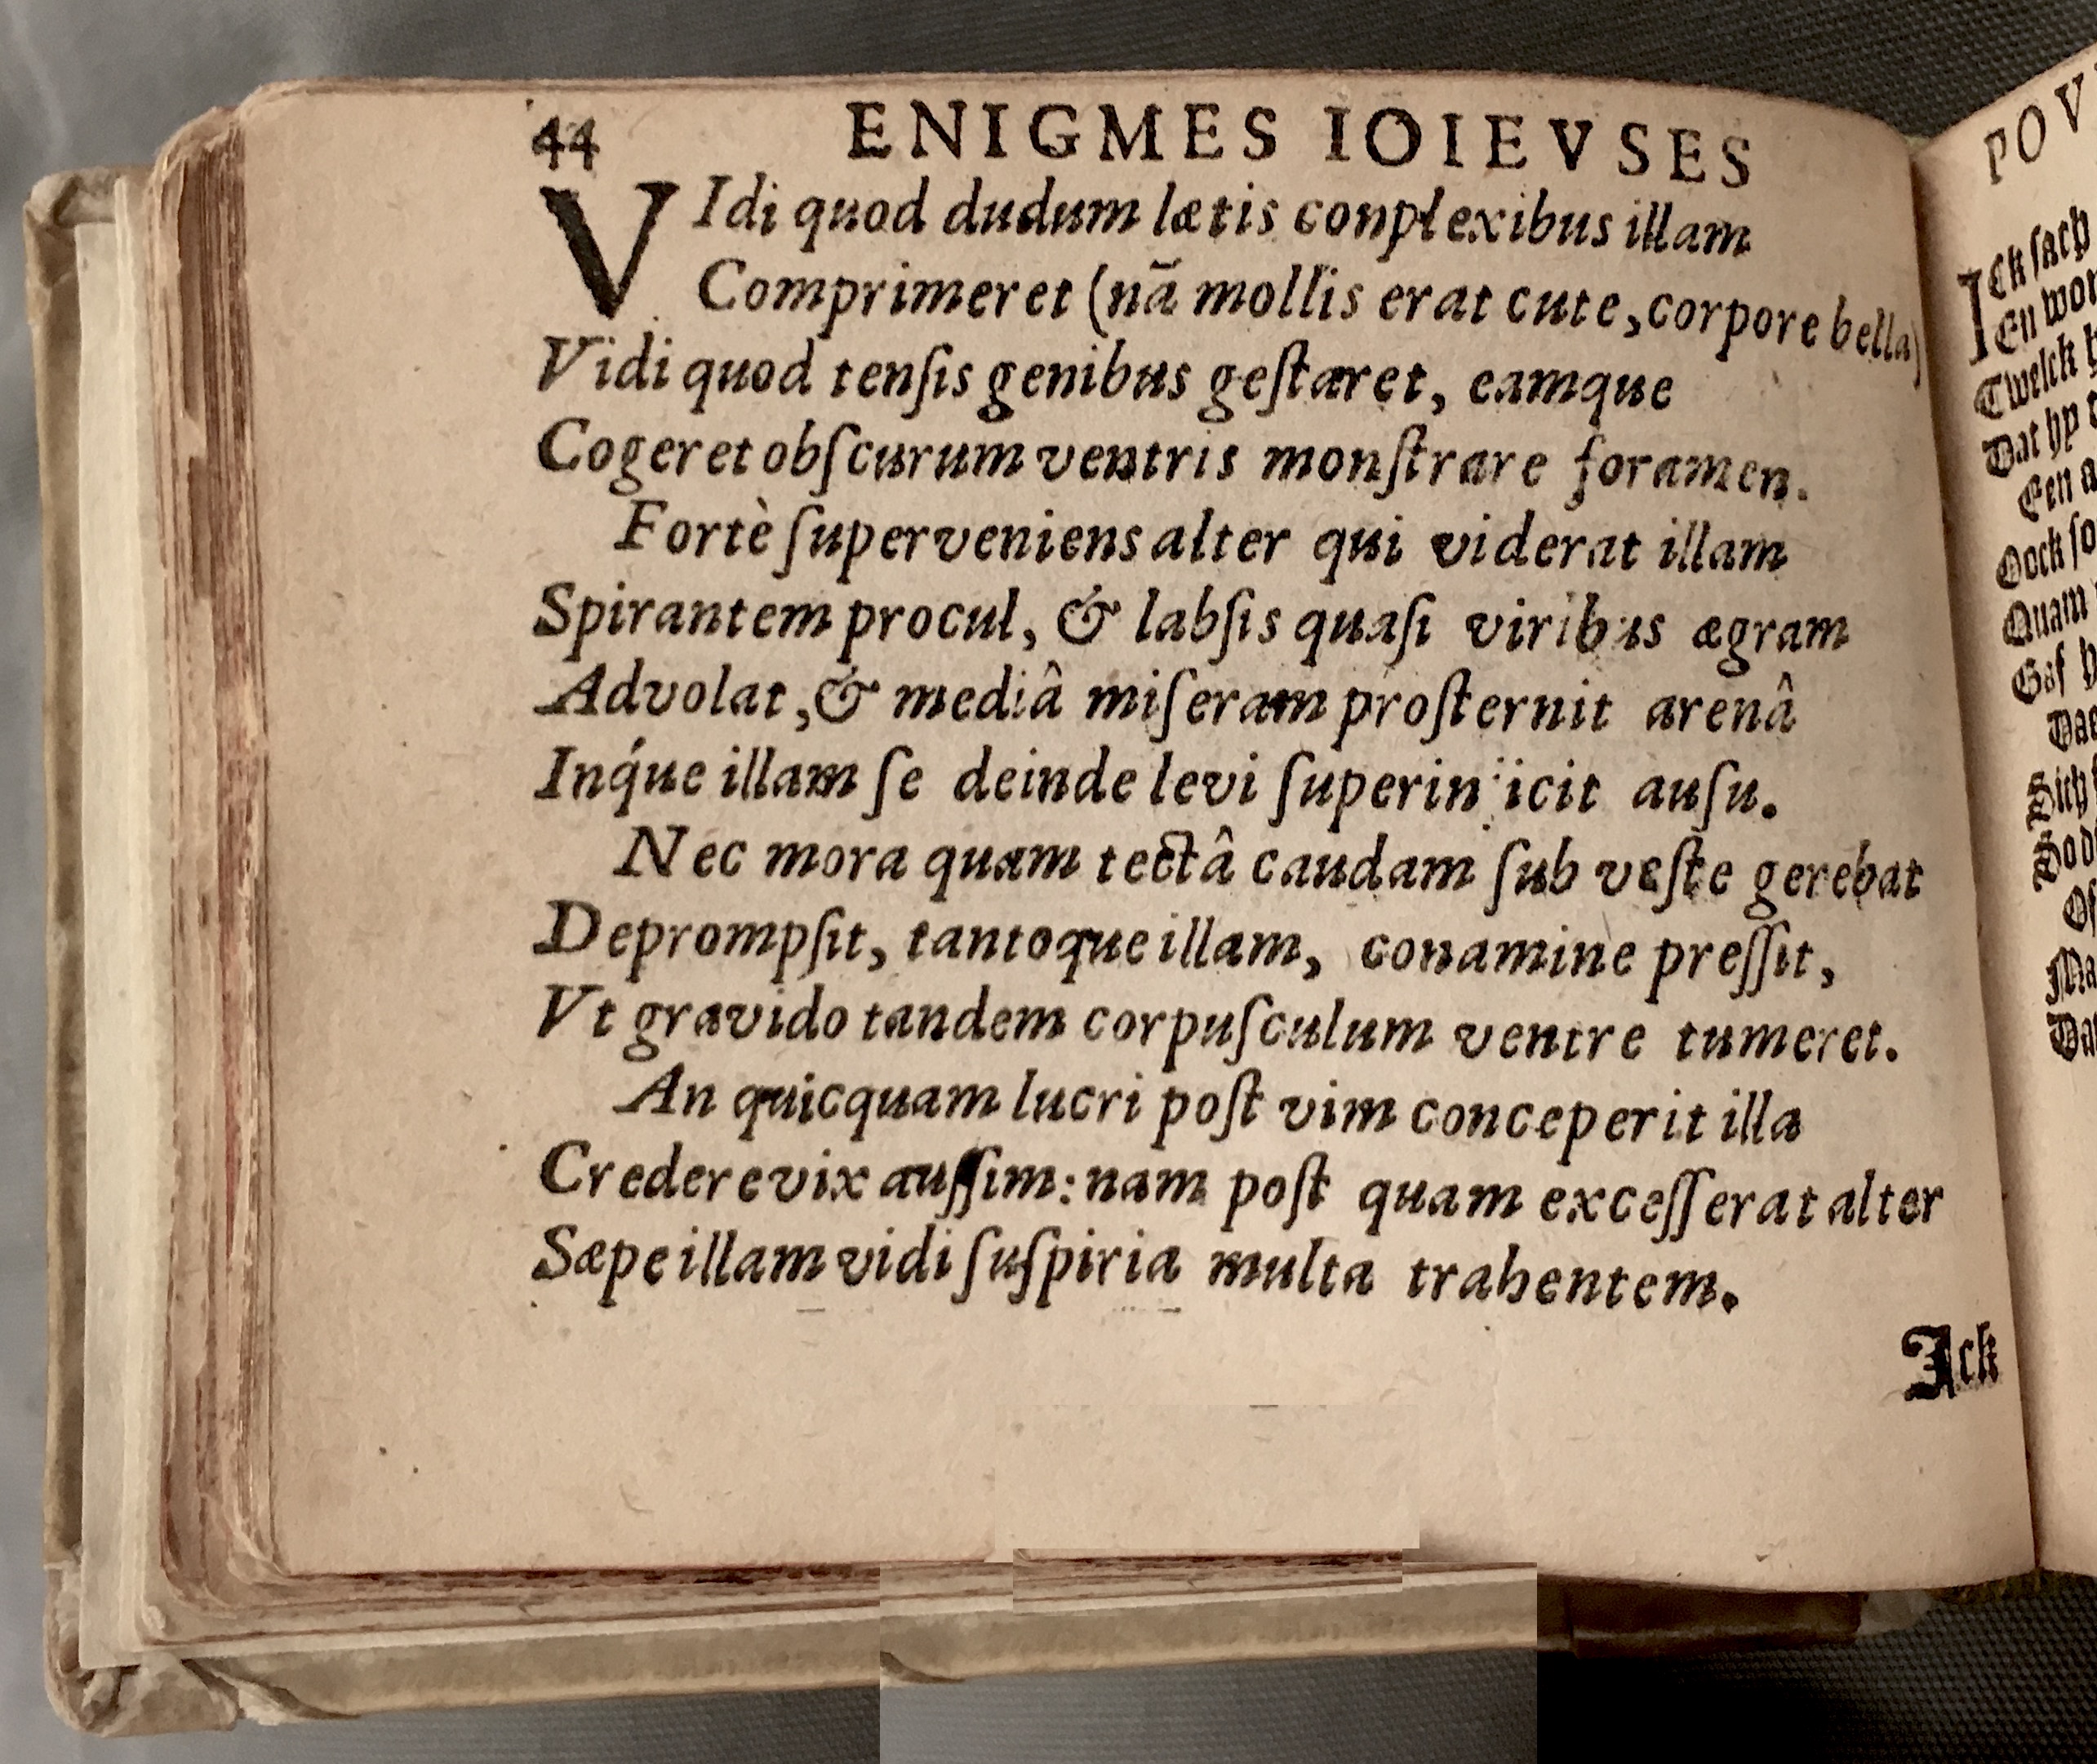 44 ENIGMES IOIEVSES
VIdi quod dudum lætis conplexibus illam
Comprimeret (nã mollis erat cute, corpore bella)
Vidi quod tenſis genibus geſtaret, eamque
Cogeret obſcurum ventris monſtrare foramen.
Fortè ſuperveniens alter qui viderat illam
Spirantem procul, & labſis quaſi viribus ægram
Advolat, & mediâ miſeram proſternit arenâ
Inq́ue illam ſe deinde levi ſuperinijcit auſu.
Nec mora quam tectâ caudam ſub veſte gerebat
Deprompſit, tantoque illam, conamine preſſit,
Vt gravido tandem corpuſculum ventre tumeret.
An quicquam lucri poſt vim conceperit illa
Credere vix auſſim: nam poſt quam exceſſerat alter
Sæpe illam vidi ſuſpiria multa trahentem.
Ick
POV
Ick ſach
En wor
Twelck
Dat hy
Een
Oock ſo
Quam
Gaf
Sich
Dat